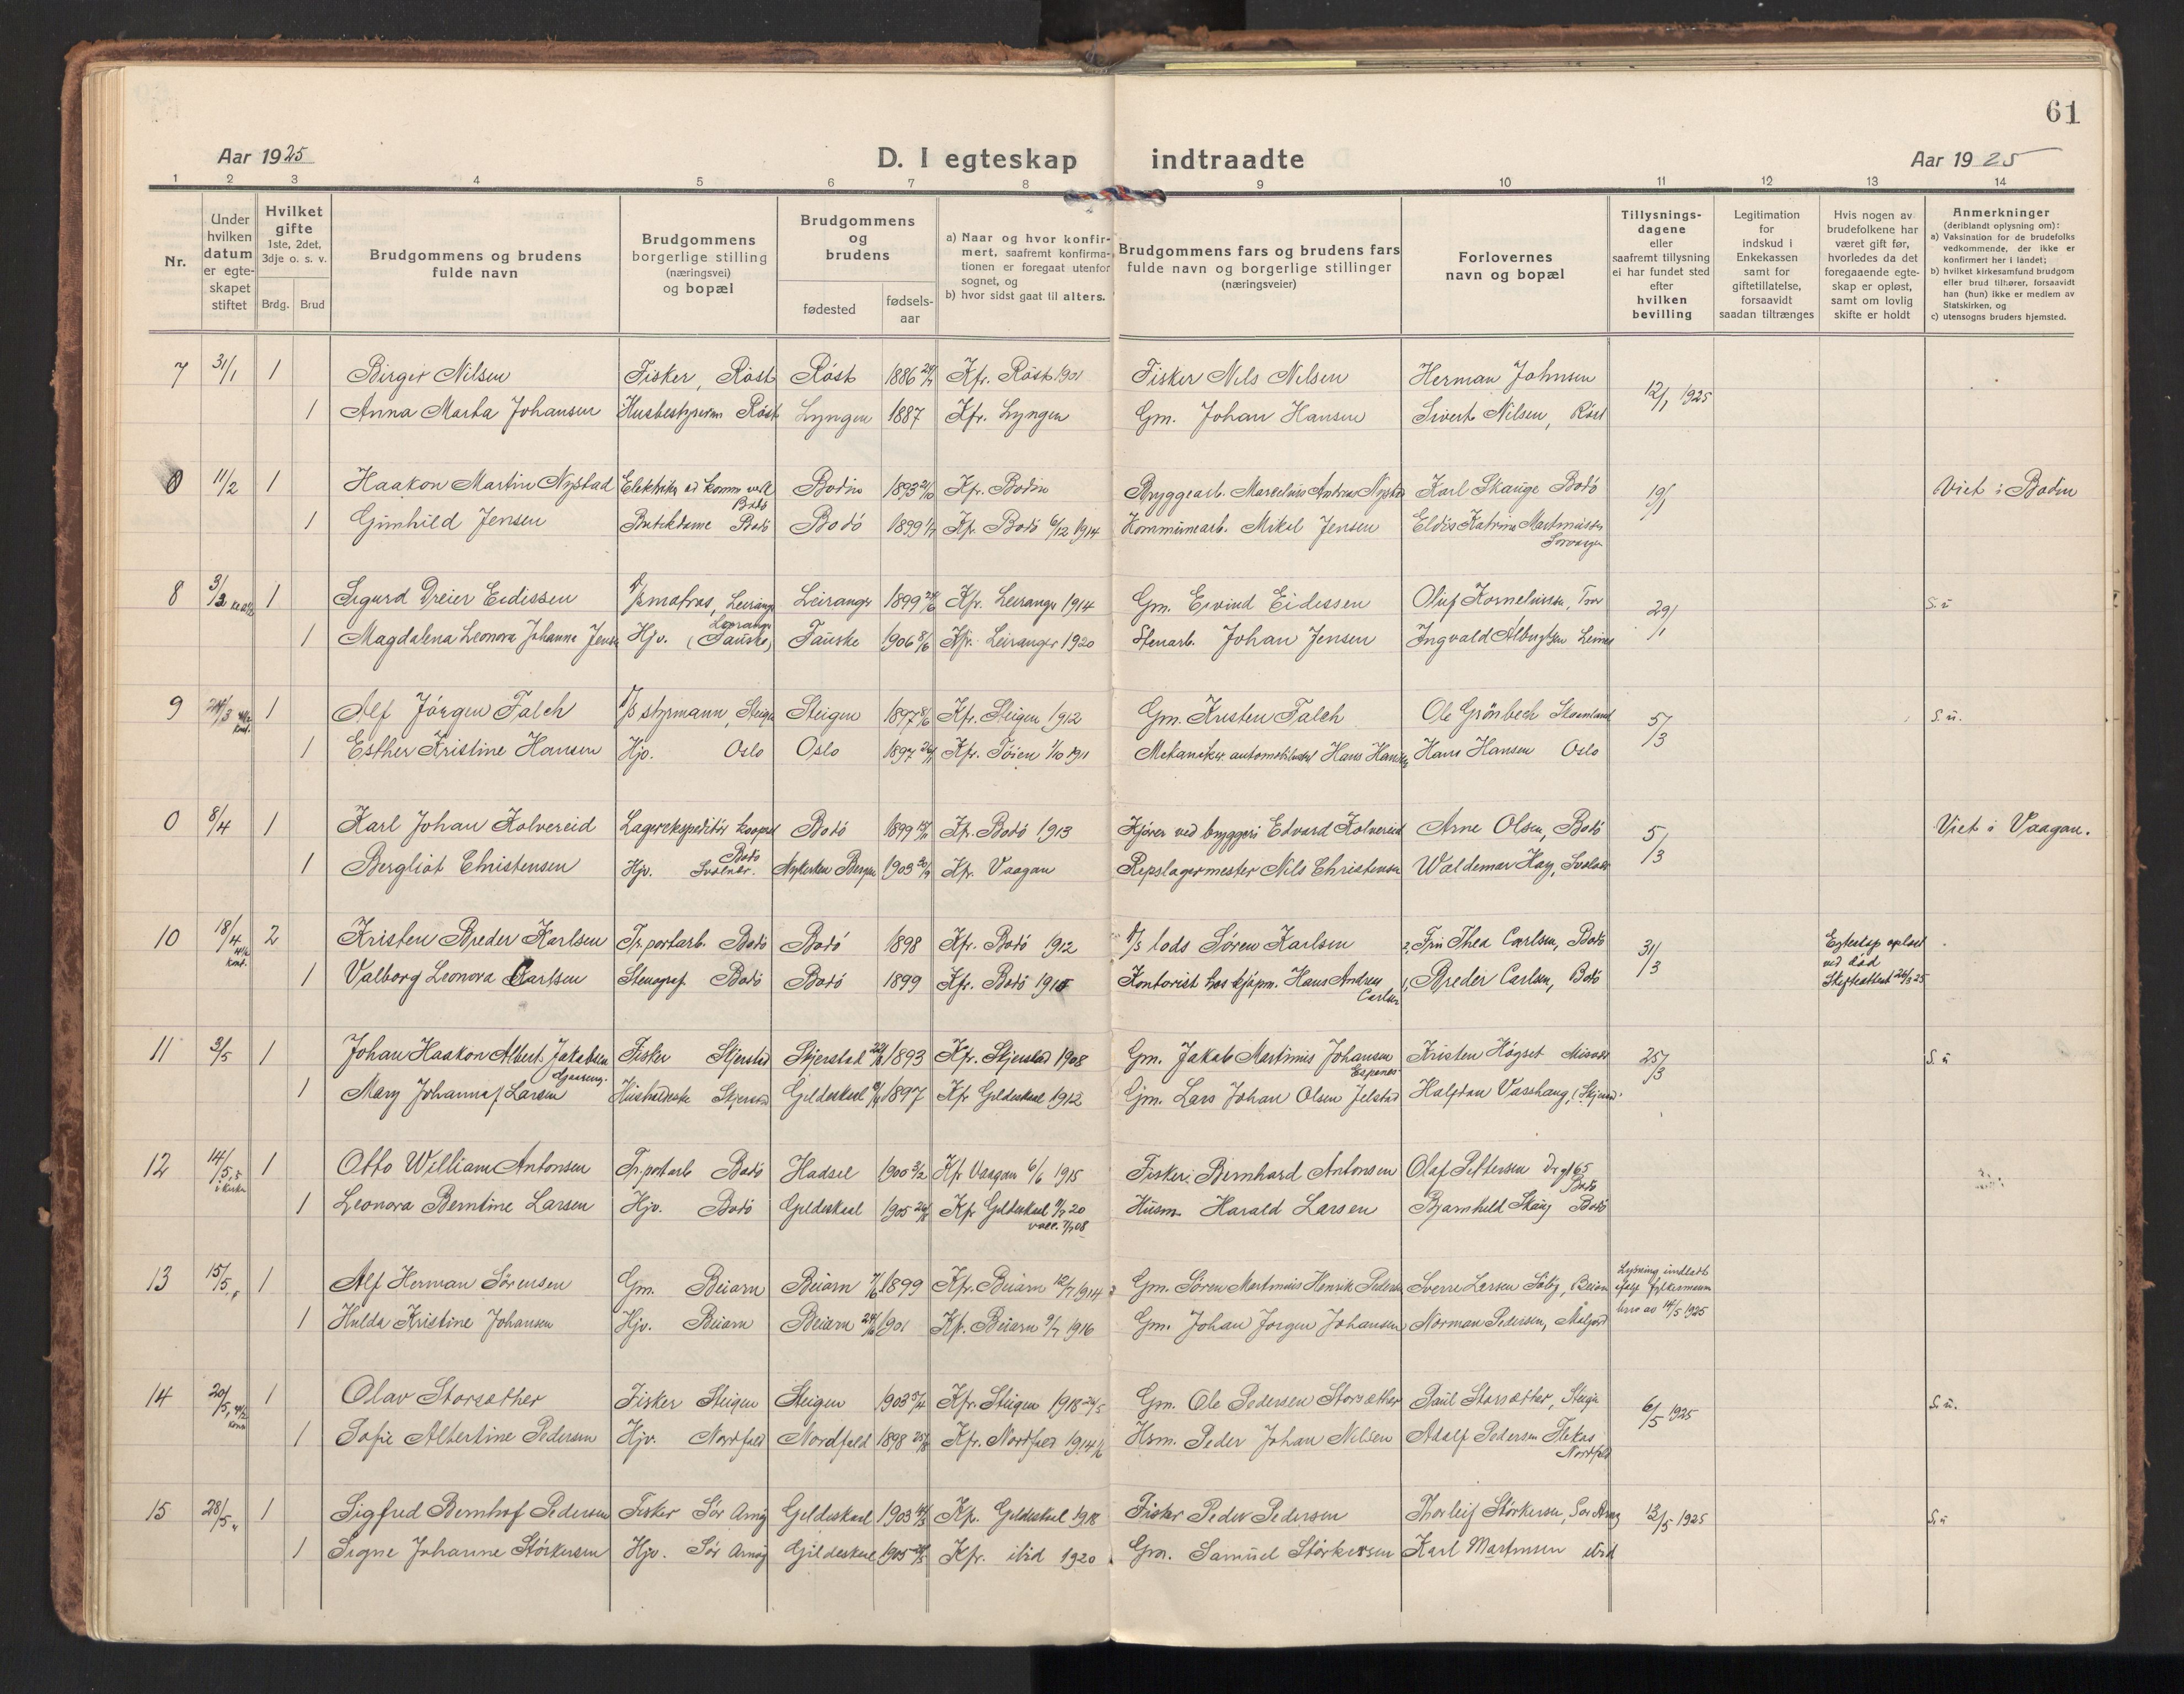 61
Aar 1925
D. I egteskap indtraadte
Aar 1925
1 2 3 4 5 6 7 8 9 10 11 12 13 14
Nr.
Under hvilken datum er egteskapet stiftet
Hvilket gifte 1ste, 2det, 3dje o. s. v.
Brdg. Brud
Brudgommens og brudens fulde navn
Brudgommens borgerlige stilling (næringsvei) og bopæl
Brudgommens og brudens
fødested
fødsels-aar
a) Naar og hvor konfirmert, saafremt konfirmationen er foregaat utenfor sognet, og
b) hvor sidst gaat til alters.
Brudgommens fars og brudens fars fulde navn og borgerlige stillinger (næringsveier)
Forlovernes navn og bopæl
Tillysningsdagene eller saafremt tillysning ei har fundet sted efter hvilken bevilling
Legitimation for indskud i Enkekassen samt for giftetillatelse, forsaavidt saadan tiltrænges
Hvis nogen av brudefolkene har været gift før, hvorledes da det foregaaende egteskap er opløst, samt om lovlig skifte er holdt
Anmerkninger (deriblandt oplysning om):
a) Vaksination for de brudefolks vedkommende, der ikke er konfirmert her i landet;
b) hvilket kirkesamfund brudgom eller brud tilhører, forsaavidt han (hun) ikke er medlem av Statskirken, og
c) utensogns bruders hjemsted.
7 31/1 1 Birger Nilsen Fisker, Röst Röst 1886 Kfr. Röst 1901 Fisker Nils Nilsen Herman Johnsen 12/1 1925
1 Anna Marta Johansen Husbestyrerin Röst Lyngen 1887 Kfr. Lyngen Gm. Johan Hansen Sivert Nilsen, Röst
0 11/2 1 Haakon Martin Nystad Elektriker Bodö Bodin 1893 Kfr. Bodin Bryggearb. Marcelius Andreas Nystad Karl Skauge Bodö 19/1 Viet i Bodin
1 Gunhild Jensen Butikdame Bodö Bodö 1899 Kfr. Bodö 6/12 1914 Kommunearb. Mikal Jensen Katrine Martinussen
8 1 Sigurd Dreier Eidissen matros, Leiranger Leiranger 1899 Kfr. Leiranger 1914 Gm. Eivind Eidissen Oluf Korneliussen, 29/1 S. u
1 Magdalena Leonora Johanna Jensen Hjv. Leiranger (Fauske) Fauske 1906 8/6 Kfr. Leiranger 1920 Stenarb. Johan Jensen Ingvald Albrigtsen Leines
9 24/3 1 Alf Jörgen Falch styrmann, Steigen Steigen 1897 Kfr. Steigen 1912 Gm. Kristen Falch Ole Grönbech Skaanland 5/3 S. u.
1 Esther Kristine Hansen Hjv. Oslo Oslo 1897 Kfr. Töien 1/10 1911 Mekaniker Hans Hansen Hans Hansen Oslo
0 8/4 1 Karl Johan Kolvereid Lagerekspeditör Bodö Bodö 1899 Kfr. Bodö 1913 Kjörer ved bryggeri Edvard Kolvereid Arne Olsen, Bodö 5/3 Viet i Vaagan.
1 Bergliot Christensen Hjv. Svolvær. Nykirken Bergen 1903 Kfr. Vaagan Repslagermester Nils Christensen Waldemar Hay, Svolvær
10 18/4 2 Kristen Breder Karlsen Tr.portarb. Bodö Bodö 1898 Kfr. Bodö 1912 lods Sören Karlsen 2. Fru Thea Carlsen, Bodö 31/3 Egteskap oplöst ved död
1 Valborg Leonora Carlsen Stenograf. Bodö Bodö 1899 Kfr. Bodö Kontorist hos kjöpm. Hans Andreas Carlsen 1, Breder Carlsen, Bodö Skifteattest 24/3 25
11 3/5 1 Johan Haakon Albert Jakobsen Fisker Skjerstad Skjerstad 1893 Kfr. Skjerstad 1908 Gm. Jakob Martinius Johansen Espenes Kristen Högset Misvær 25/3 S. u
1 Mary Johanna Larsen Husholderske Skjerstad Gildeskaal 1897 Kfr Gildeskaal 1912 Gm. Lars Johan Olsen Jelstad Halfdan Vasshaug, Skjerstad
12 14/5 i kirke 1 Otto William Antonsen Tr.portarb Bodö Hadsel 1900 3/2 Kfr Vaagan 6/6 1915 Fisker. Bernhard Antonsen Olaf Pettersen 65 Bodö
1 Leonora Berntine Larsen Hjv. Bodö Gildeskaal 1905 Kfr Gildeskaal 20 Husm. Harald Larsen Bjarnhild Skaug Bodö
13 15/5 1 Alf Herman Sörensen Gm. Beiarn Beiarn 1899 Kfr. Beiarn 12/7 1914 Gm. Sören Martinius Henrik Pedersen Sverre Larsen Söby, Beiarn Lysning indladt ifölge fylkesmann brev av 14/5 1925
1 Hulda Kristine Johansen Hjv. Beiarn Beiarn 1901 Kfr. Beiarn 9/7 1916 Gm. Johan Jörgen Johansen Norman Pedersen,
14 20/5 1 Olav Storsæther Fisker Steigen Steigen 1903 Kfr. Steigen 1918 Gm. Ole Pedersen Storsæther Paul Storsæther, Steigen 6/5 1925 S. u.
1 Sofie Albertine Pedersen Hjv. Nordfold Nordfold 1898 Kfr. Nordfold 1914 Hsm. Peder Johan Nilsen Adolf Pedersen Nordfold
15 28/5 " 1 Sigfred Bernhof Pedersen Fisker Sör Arnöy Gildeskaal 1903 Kfr. Gildeskaal 1918 Fisker Peder Pedersen Thorleif Störkersen, Sör Arnöy 12/5 1925 S. u
1 Signe Johanne Störkersen Hjv. Sör Arnöy Gildeskaal 1905 Kfr. ibid 1920 Gm. Samuel Störkersen Karl Martinsen ibid